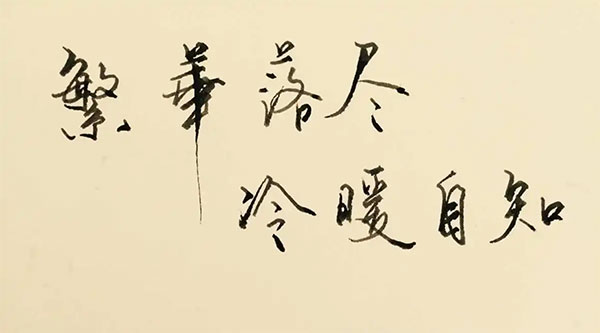 繁華落尽
冷暖自知